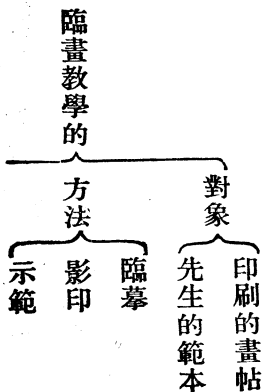 臨畫教學的
對象
印刷的畫帖
先生的範本
方法
臨摹
影印
示範